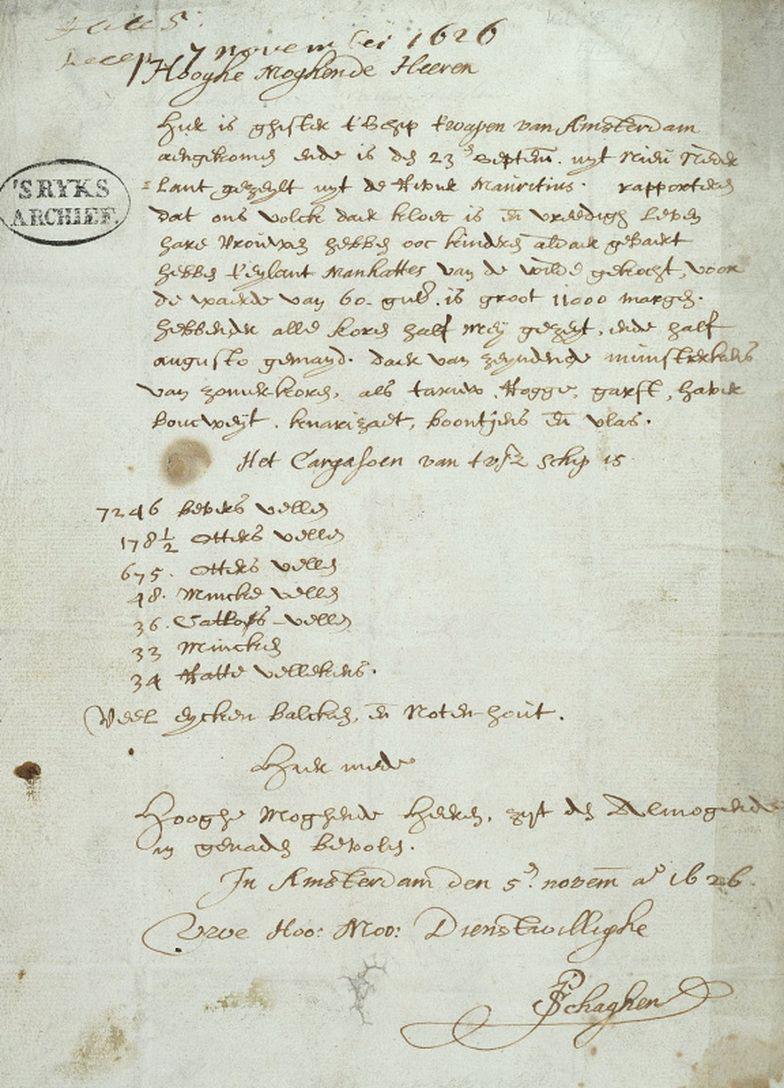 Recep 7 november 1626
Hooghe Moghende Heeren
Hier is ghister t' Schip t' wapen van Amsterdam
aengekomen ende is den 23en Septem. uyt Nieu Neder
lant gezeylt uyt de Rivier Mauritius. rapporteren
dat ons volck daer kloec is en vreedigh leven
hare Vrouwen hebben ooc kinderen aldaer gebaert
hebben t' eylant Manhattes van de wilde gekocht, voor
de waerde van 60 guld. is groot 11000 morgen.
hebbende alle koren half Mey gezeyt, ende half
augusto gemayd. daer van zeynde munsterkens
van zomerkoren, als tarruw, Rogge, garst, haver
boucweyt, knarizaet, boontjens en vlas.
Het Cargasoen van tvsz Schip is
7246 bevers vellen
178½ Otters vellen
675. Otters vellen
48. Mincke vellen
36. Catloes vellen
33 Mincken
34 Ratte vellekens.
Veel eycken balcken, en Noten hout.
Hier mede
Hooghe Moghende Heeren, zijt den Almogende
in genaden bevolen.
In Amsterdam den 5en novem ao 1626.
Uwe Hoo: Moo: Dienstwillighe
P Schaghen
'S RYKS
ARCHIEF.